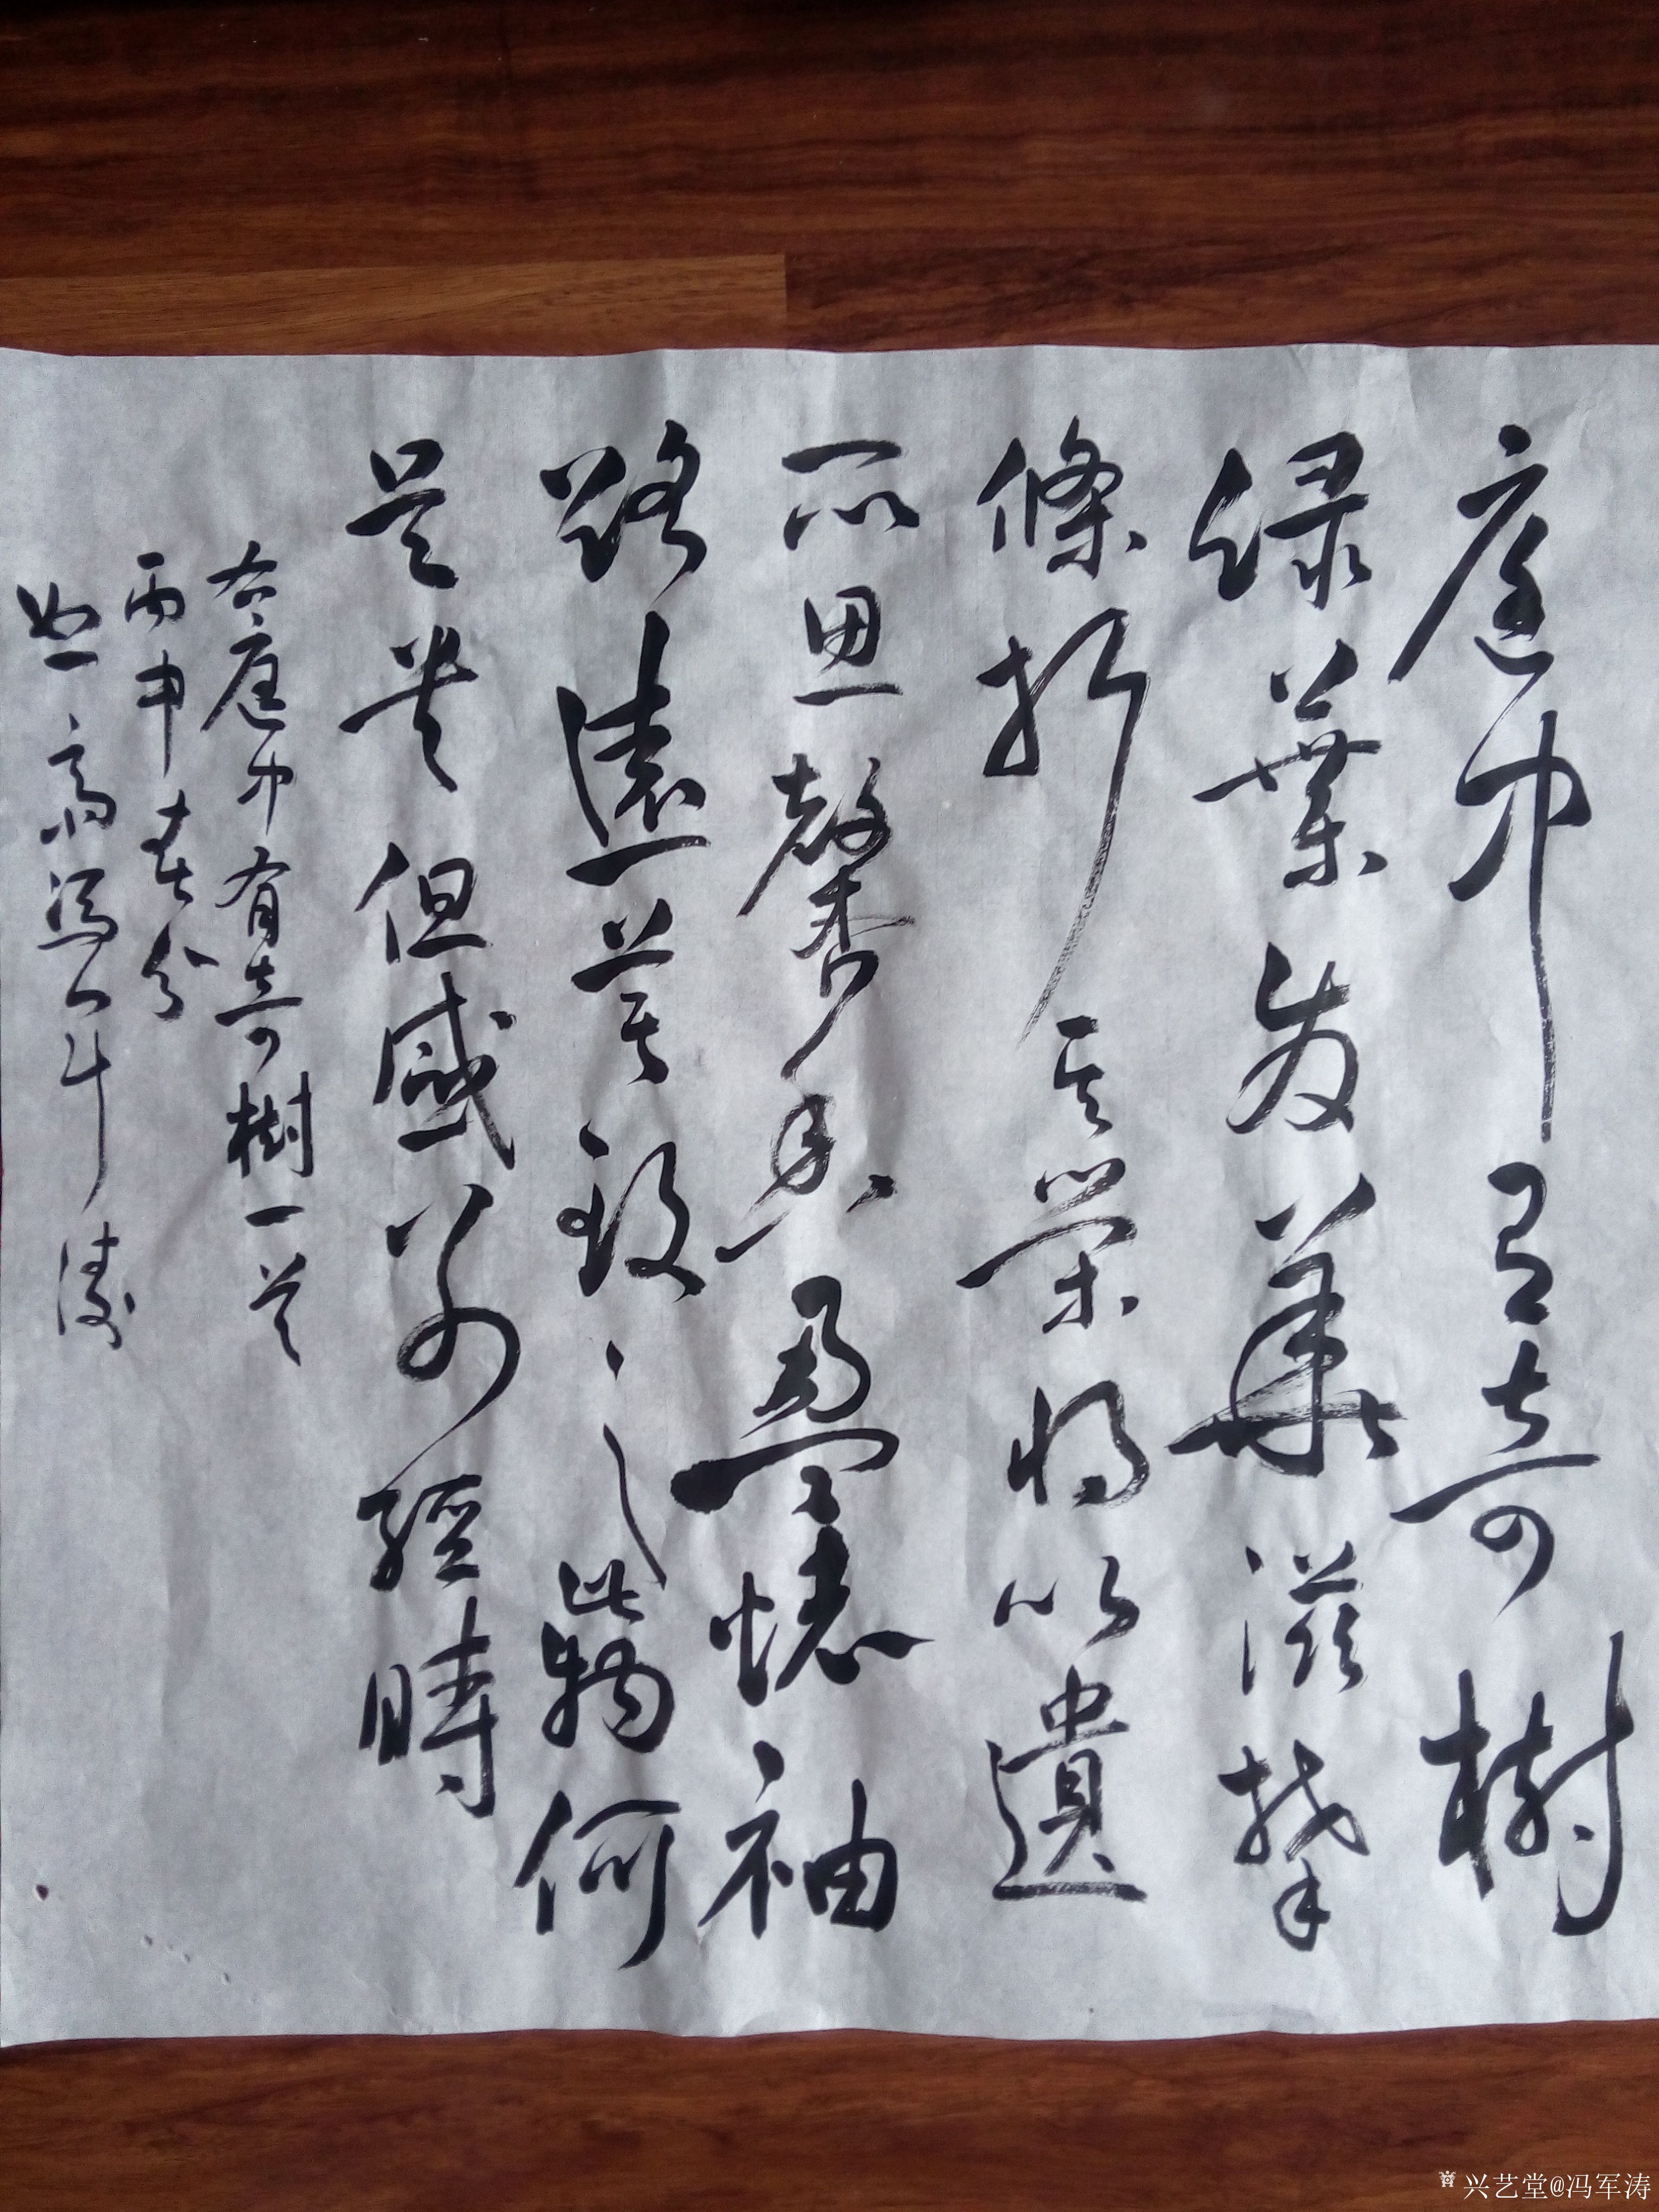 庭中有奇樹
緑葉發華滋攀
條折其榮將以遺
所思馨香盈懷袖
路遠莫致之此物何
足貴但感別經時
右庭中有奇樹一首
丙申春分
馮軍濤
兴艺堂@冯军涛